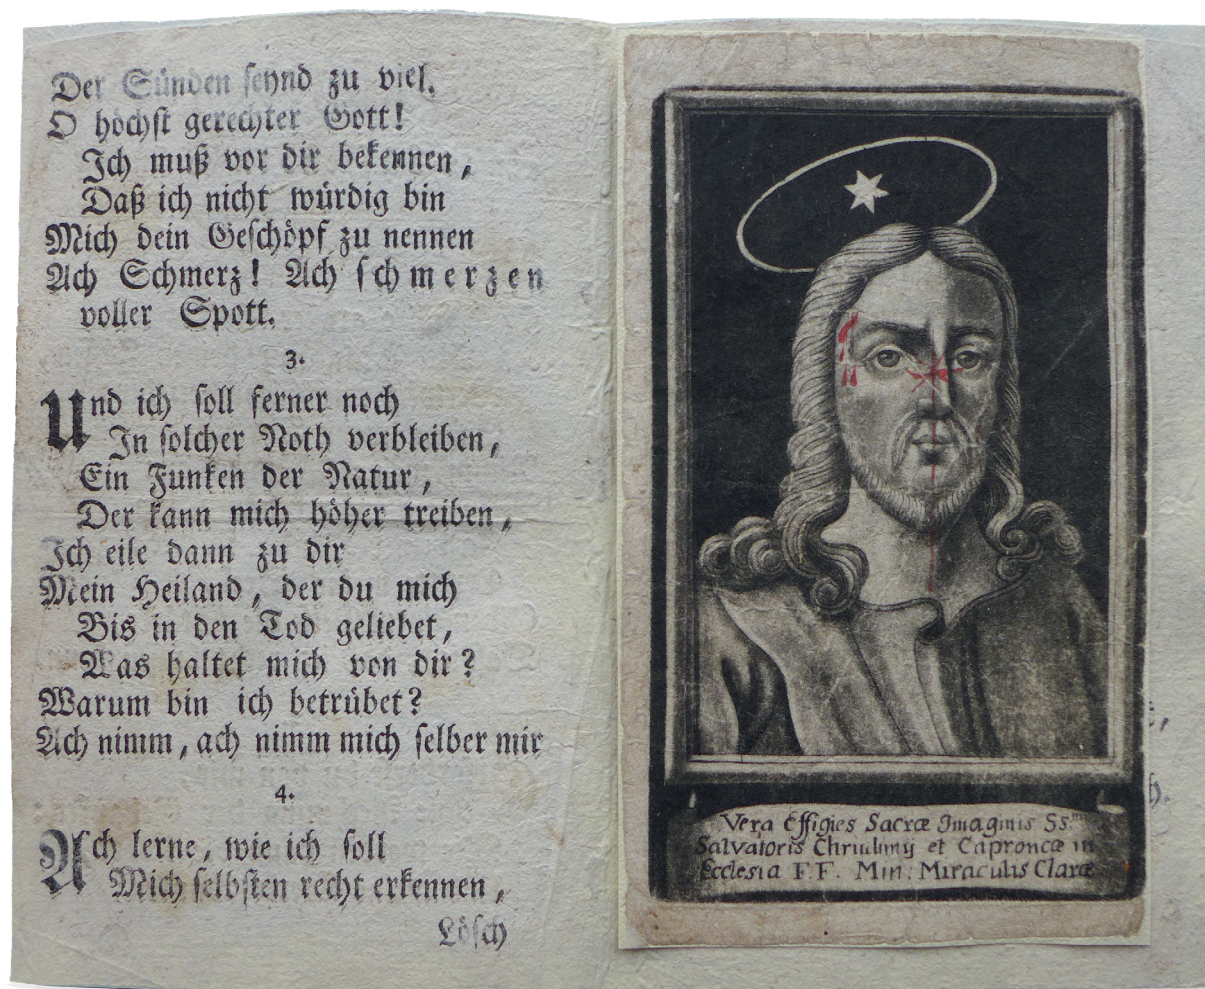 Der Sünden seynd zu viel.
O höchst gerechter Gott!
Ich muß vor dir bekennen,
Daß ich nicht würdig bin
Mich dein Geschöpf zu nennen
Ach Schmerz! Ach schmerzen
voller Spott.
3.
Und ich soll ferner noch
In solcher Noth verbleiben,
Ein Funken der Natur,
Der kann mich höher treiben,
Ich eile dann zu dir
Mein Heiland, der du mich
Bis in den Tod geliebet,
Was haltet mich von dir?
Warum bin ich betrübet?
Ach nimm, ach nimm mich selber mir
4.
Ach lerne, wie ich soll
Mich selbsten recht erkennen,
Lösch
Vera Effigies Sacræ Imaginis Ss.
Salvatoris et Caproncæ in
Ecclesia F. F. Min: Miraculis Claræ